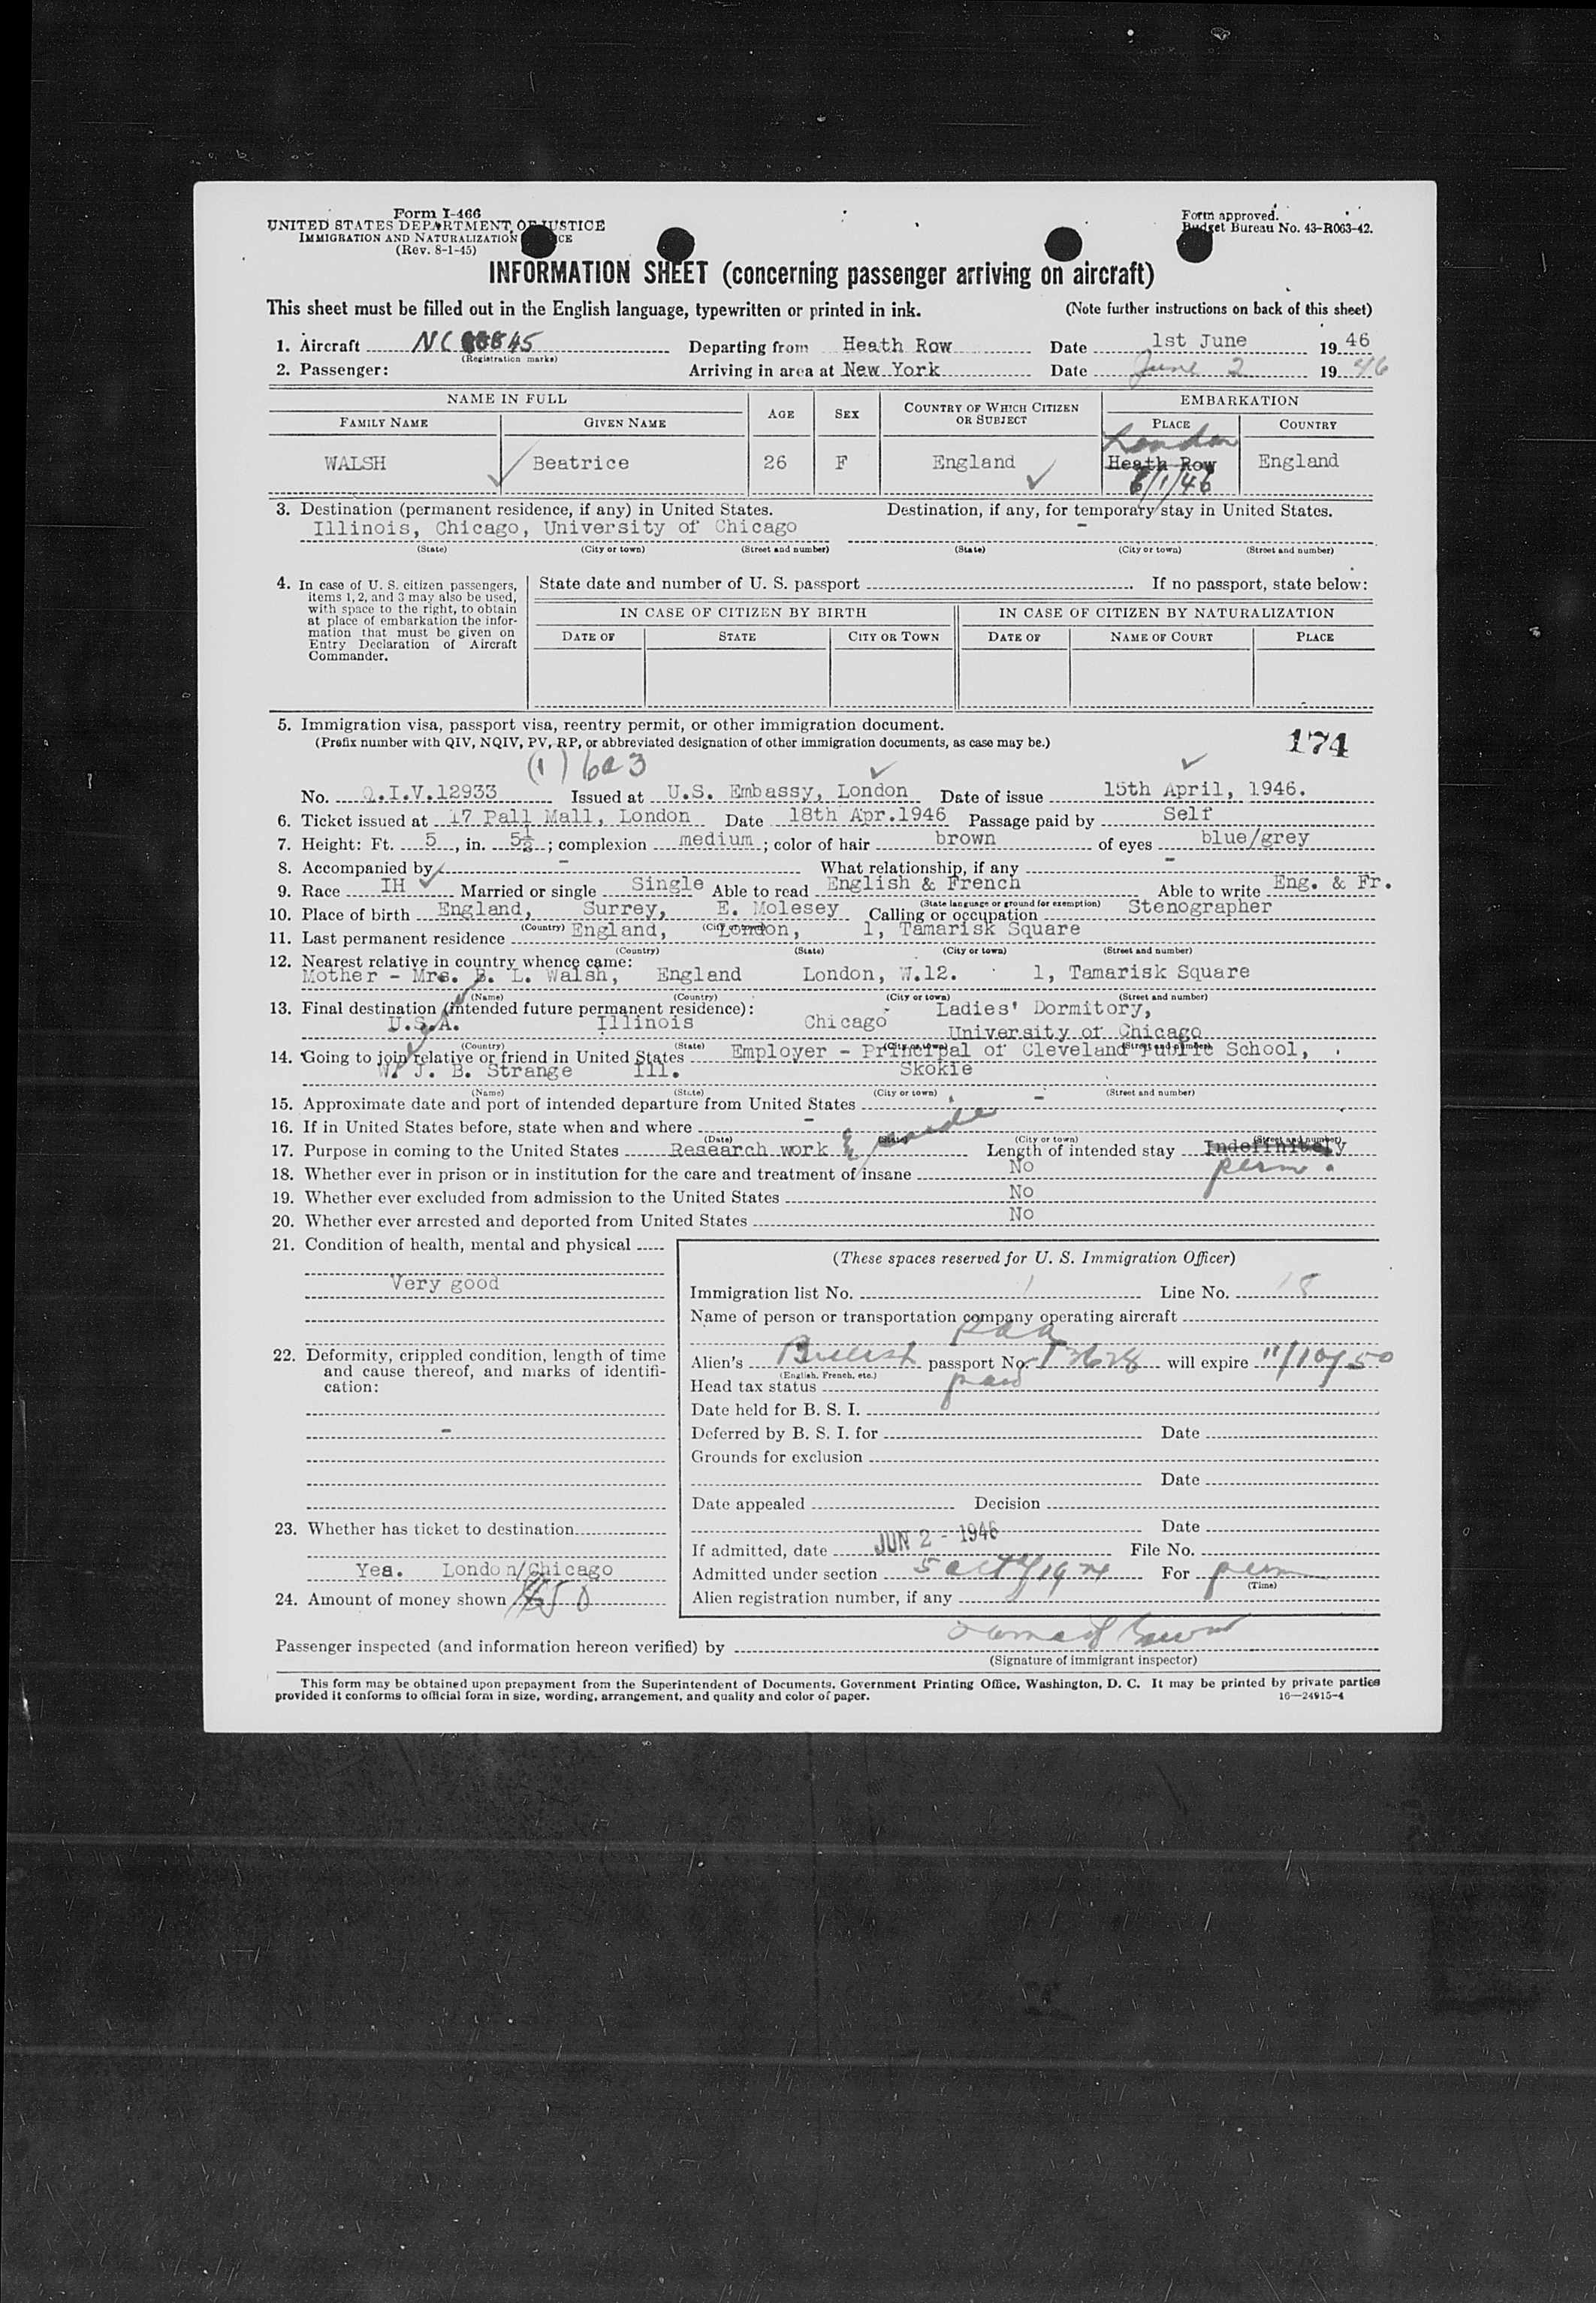 Form I-466
UNITED STATES DEPARTMENT OF JUSTICE
IMMIGRATION AND NATURALIZATION
(Rev. 8-1-45)
Form approved.
Budget Bureau No. 43-R063-42.
INFORMATION SHEET (concerning passenger arriving on aircraft)
This sheet must be filled out in the English language, typewritten or printed in ink. (Note further instructions on back of this sheet)
1. Aircraft NC Departing from Heath Row Date 1st June 1946
(Registration marks)
2. Passenger: Arriving in area at New York Date June 2 1946
NAME IN FULL AGE SEX COUNTRY OF WHICH CITIZEN OR SUBJECT EMBARKATION
FAMILY NAME GIVEN NAME PLACE COUNTRY
London
WALSH Beatrice 26 F England Heath Row England
6/1/46
3. Destination (permanent residence, if any) in United States. Destination, if any, for temporary stay in United States.
Illinois, Chicago, University of Chicago -
(State) (City or town) (Street and number) (State) (City or town) (Street and number)
4. In case of U. S. citizen passengers, items 1, 2, and 3 may also be used, with space to the right, to obtain at place of embarkation the information that must be given on Entry Declaration of Aircraft Commander.
State date and number of U. S. passport If no passport, state below:
IN CASE OF CITIZEN BY BIRTH IN CASE OF CITIZEN BY NATURALIZATION
DATE OF STATE CITY OR TOWN DATE OF NAME OF COURT PLACE
5. Immigration visa, passport visa, reentry permit, or other immigration document.
(Prefix number with QIV, NQIV, PV, RP, or abbreviated designation of other immigration documents, as case may be.) 174
(1) 6a3
No. Q.I.V.12933 Issued at U.S. Embassy, London Date of issue 15th April, 1946.
6. Ticket issued at 17 Pall Mall, London Date 18th Apr.1946 Passage paid by Self
7. Height: Ft. 5, in. 5½; complexion medium; color of hair brown of eyes blue/grey
8. Accompanied by - What relationship, if any -
9. Race IH Married or single Single Able to read English & French Able to write Eng. & Fr.
(State language or ground for exemption)
10. Place of birth England, Surrey, E. Molesey Calling or occupation Stenographer
(Country) (City or town)
11. Last permanent residence England, London, 1, Tamarisk Square
(Country) (State) (City or town) (Street and number)
12. Nearest relative in country whence came:
Mother - Mrs. B. L. Walsh, England London, W.12. 1, Tamarisk Square
(Name) (Country) (City or town) (Street and number)
13. Final destination (intended future permanent residence): Ladies' Dormitory,
U.S.A. Illinois Chicago University of Chicago
(Country) (State) (City or town) (Street and number)
14. Going to join relative or friend in United States Employer - Principal of Cleveland Public School,
W. J. B. Strange Ill. Skokie
(Name) (State) (City or town) (Street and number)
15. Approximate date and port of intended departure from United States -
16. If in United States before, state when and where -
(Date) (State) (City or town) (Street and number)
17. Purpose in coming to the United States Research work & reside Length of intended stay Indefinitely
perm.
18. Whether ever in prison or in institution for the care and treatment of insane No
19. Whether ever excluded from admission to the United States No
20. Whether ever arrested and deported from United States No
21. Condition of health, mental and physical
Very good
22. Deformity, crippled condition, length of time and cause thereof, and marks of identification:
-
23. Whether has ticket to destination
Yes. London/Chicago
24. Amount of money shown
(These spaces reserved for U. S. Immigration Officer)
Immigration list No. 1 Line No. 18
Name of person or transportation company operating aircraft
PAA
Alien's British passport No. will expire 11/10/50
(English, French, etc.)
Head tax status paid
Date held for B. S. I.
Deferred by B. S. I. for Date
Grounds for exclusion
Date
Date appealed Decision
Date
If admitted, date JUN 2 - 1946 File No.
Admitted under section 5 act of 1924 For perm
(Time)
Alien registration number, if any
Passenger inspected (and information hereon verified) by
(Signature of immigrant inspector)
This form may be obtained upon prepayment from the Superintendent of Documents, Government Printing Office, Washington, D. C. It may be printed by private parties
provided it conforms to official form in size, wording, arrangement, and quality and color of paper. 16—24915-4